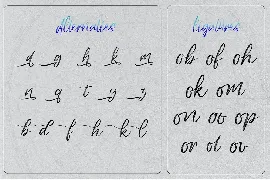 alternates
d g h k m
n q t y z
b d f h k l
ligatures
ob of oh
ok om
on oo op
or ot ov